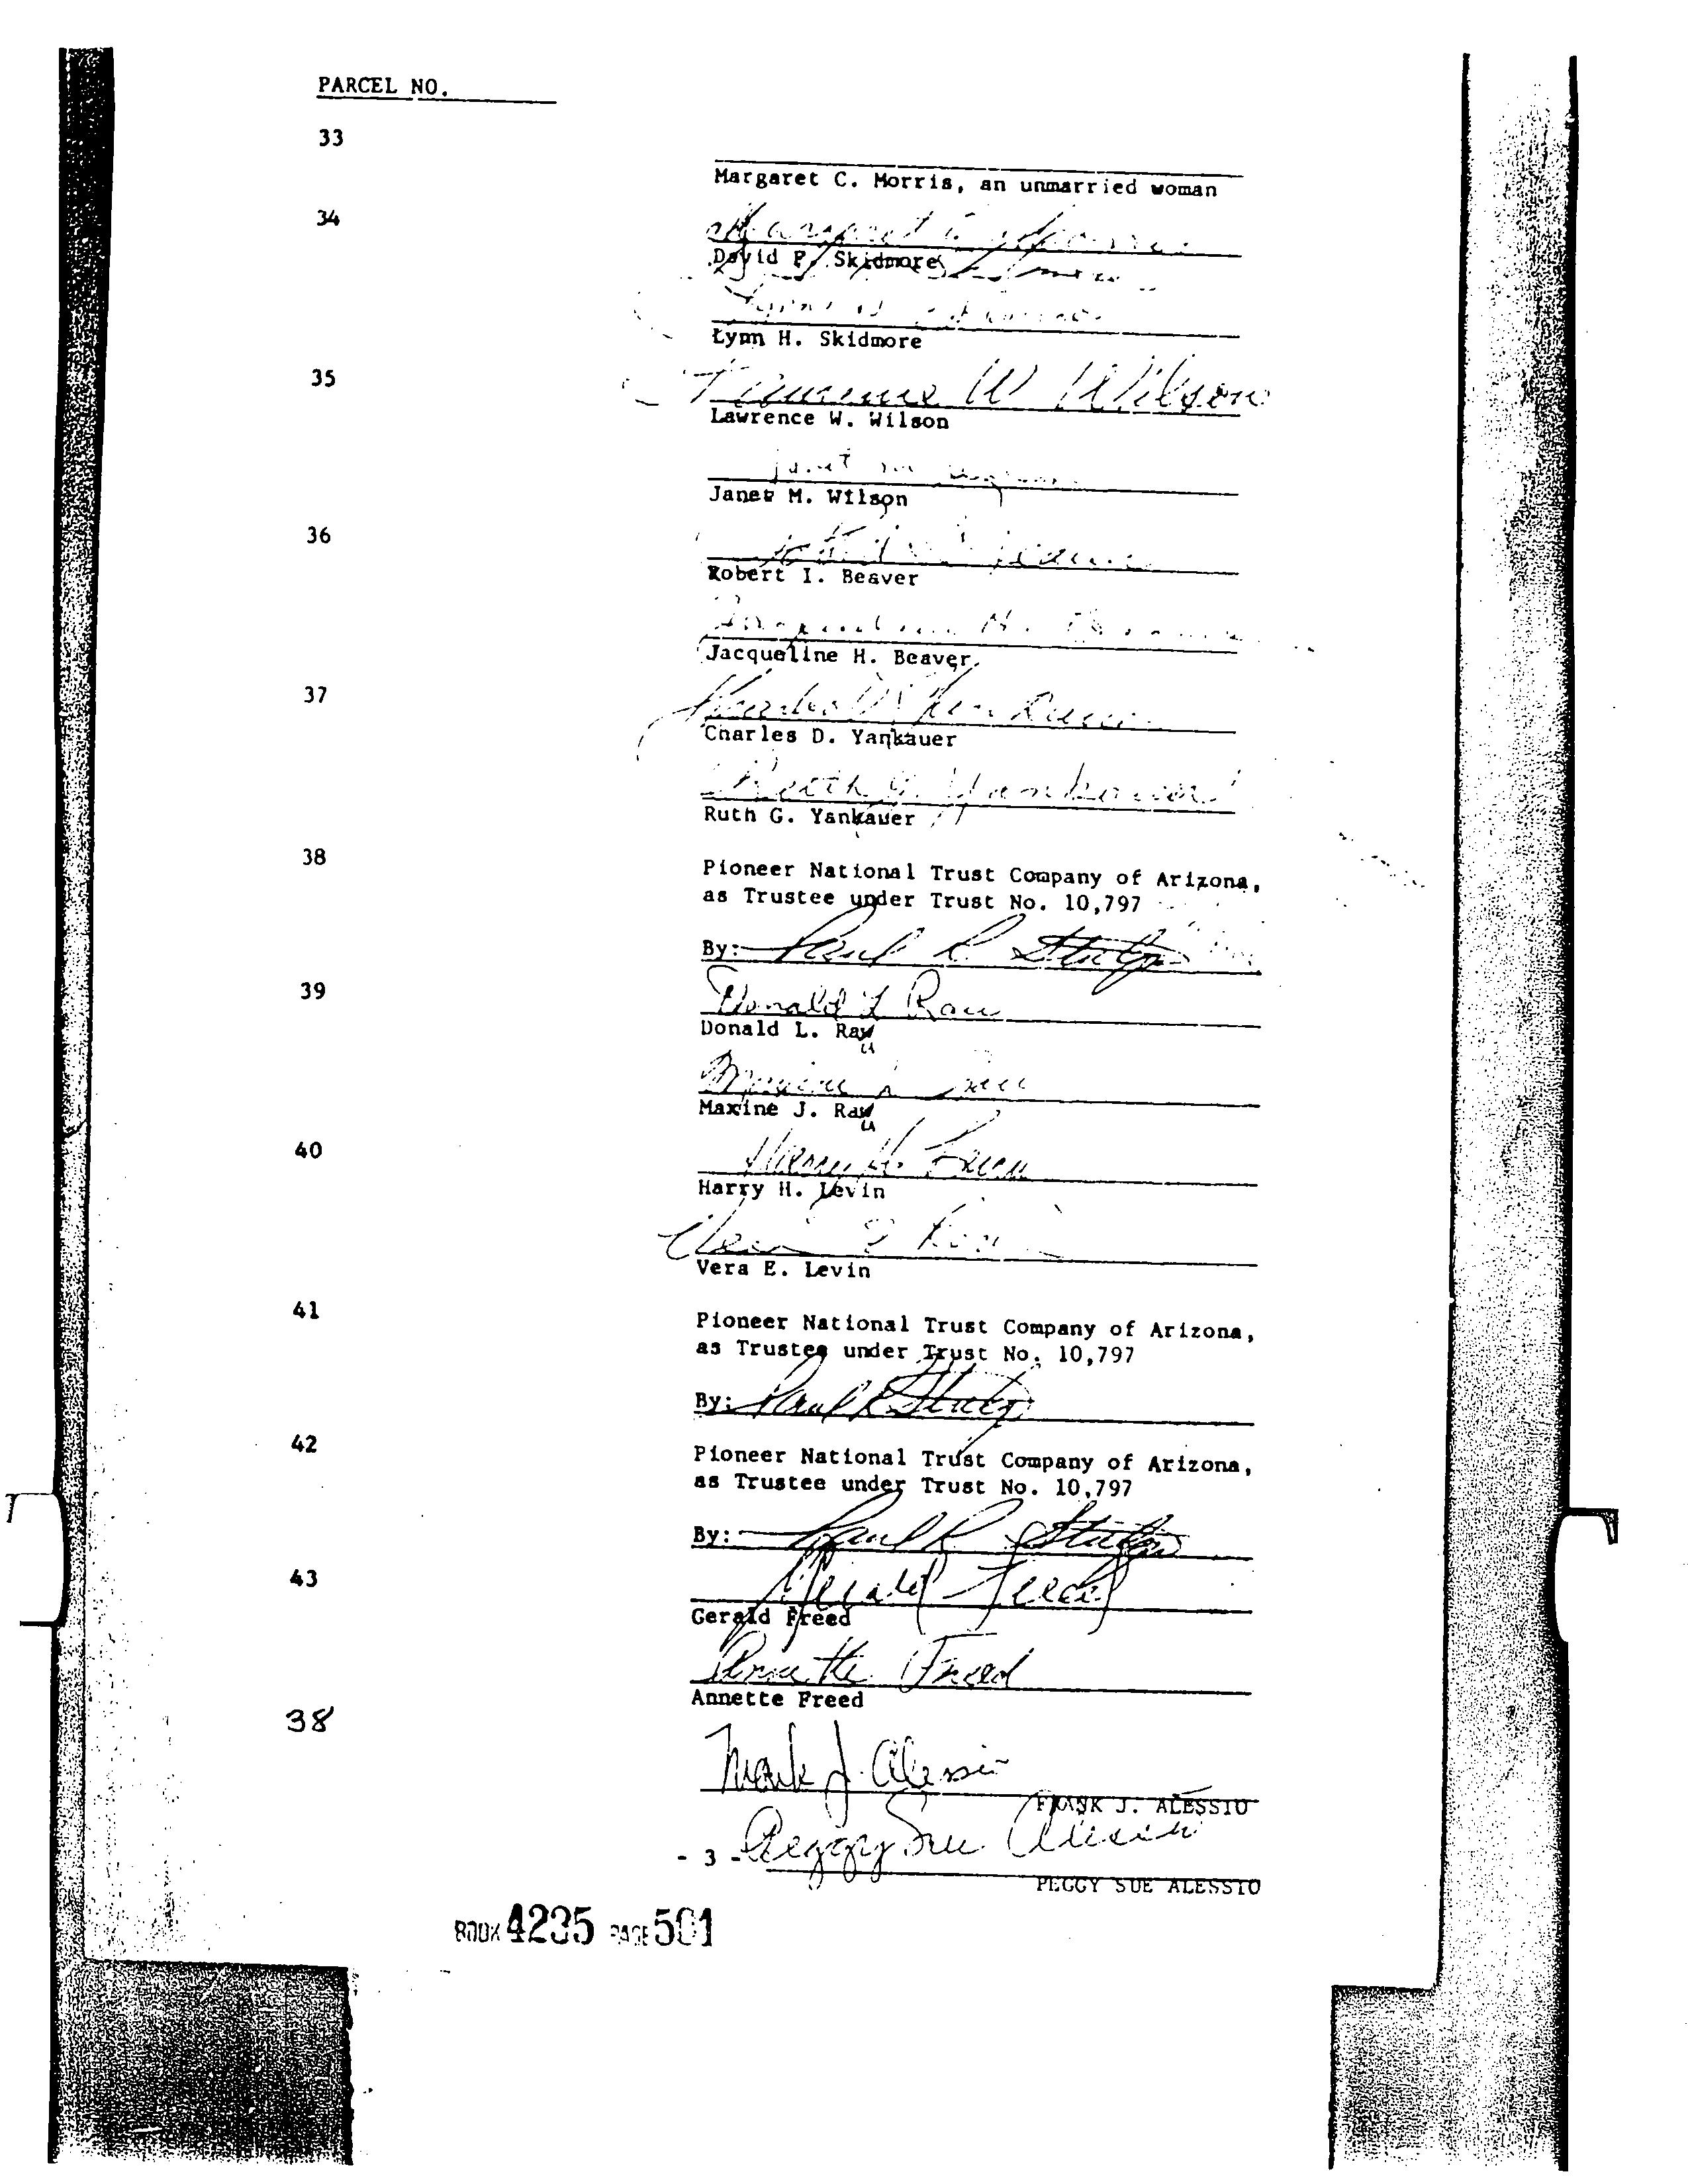 PARCEL NO.
33
Margaret C. Morris, an unmarried woman
34
Margaret C. Morris
David P. Skidmore
Lynn H. Skidmore
35
Lawrence W Wilson
Lawrence W. Wilson
Janet M. Wilson
36
Robert I. Beaver
Jacqueline H. Beaver
Jacqueline H. Beaver
37
Charles D. Yankauer
Ruth G. Yankauer
Ruth G. Yankauer
38
Pioneer National Trust Company of Arizona,
as Trustee under Trust No. 10,797
By: Paul R.
39
Donald L Rau
Donald L. Rau
Maxine J. Rau
40
Harry H. Levin
Harry H. Levin
Vera E. Levin
Vera E. Levin
41
Pioneer National Trust Company of Arizona,
as Trustee under Trust No. 10,797
By: Paul R
42
Pioneer National Trust Company of Arizona,
as Trustee under Trust No. 10,797
By: Paul R
43
Gerald Freed
Gerald Freed
Annette Freed
Annette Freed
38
J. Alessio
FRANK J. ALESSIO
Peggy Sue Alessio
- 3 -
PEGGY SUE ALESSIO
BOOK 4235 PAGE 501